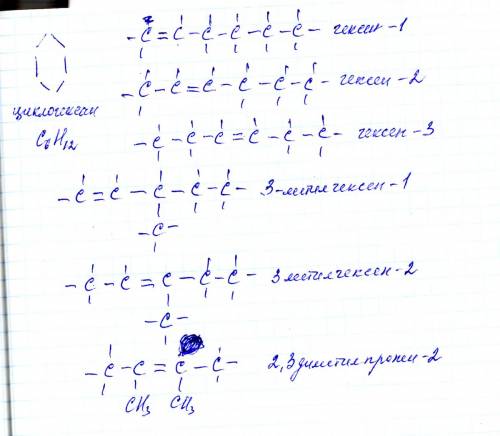 -C=C-C-C-C-C- гексен-1
-C-C=C-C-C-C- гексен-2
циклогексан
C6H12
-C-C-C=C-C-C- гексен-3
-C=C-C-C-C- 3-метилгексен-1
-C-
-C-C=C-C-C- 3метилгексен-2
-C-
-C-C=C-C- 2,3диметилпропен-2
CH3 CH3